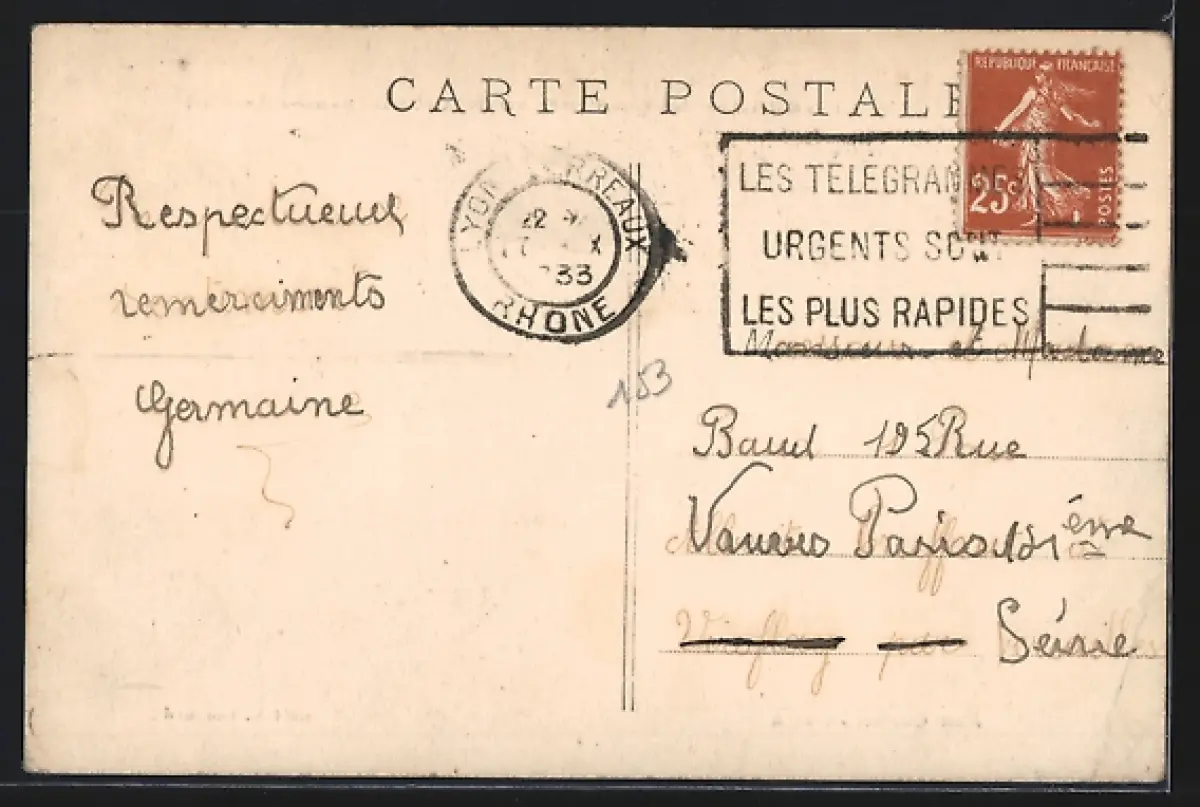 CARTE POSTALE
REPUBLIQUE FRANÇAISE
25c
POSTES
LYON RREAUX
22
33
RHONE
LES TÉLÉGRAM
URGENTS SONT
LES PLUS RAPIDES
Respectueux
remerciments
Germaine
153
Monsieur et Madame
Baud 195 Rue
Vanves Paris ème
Seine